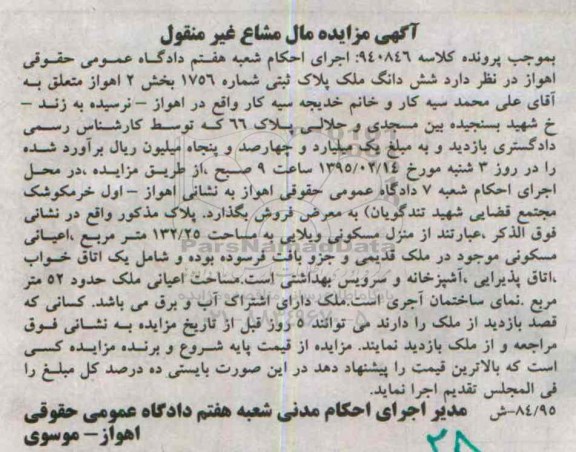 آگهی مزایده مال مشاع غیر منقول
بموجب پرونده کلاسه ۹۴۰۸۴۶: اجرای احکام شعبه هفتم دادگاه عمومی حقوقی
اهواز در نظر دارد شش دانگ ملک پلاک ثبتی شماره ۱۷۵۶ بخش ۲ اهواز متعلق به
آقای علی محمد سیه کار و خانم خدیجه سیه کار واقع در اهواز – نرسیده به زند –
خ شهید بسنجیده بین مسجدی و جلالی پلاک ۶۶ که توسط کارشناس رسمی
دادگستری بازدید و به مبلغ یک میلیارد و چهارصد و پنجاه میلیون ریال برآورد شده
را در روز ۳ شنبه مورخ ۱۳۹۵/۰۲/۱۴ ساعت ۹ صبح ،از طریق مزایده ،در محل
اجرای احکام شعبه ۷ دادگاه عمومی حقوقی اهواز به نشانی اهواز – اول خرمکوشک
مجتمع قضایی شهید تندگویان) به معرض فروش بگذارد. پلاک مذکور واقع در نشانی
فوق الذکر ،عبارتند از منزل مسکونی ویلایی به مساحت ۱۳۲/۲۵ متر مربع ،اعیانی
مسکونی موجود در ملک قدیمی و جزو بافت فرسوده بوده و شامل یک اتاق خواب
،اتاق پذیرایی ،آشپزخانه و سرویس بهداشتی است.مساحت اعیانی ملک حدود ۵۲ متر
مربع .نمای ساختمان آجری است.ملک دارای اشتراک آب و برق می باشد. کسانی که
قصد بازدید از ملک را دارند می توانند ۵ روز قبل از تاریخ مزایده به نشانی فوق
مراجعه و از ملک بازدید نمایند. مزایده از قیمت پایه شروع و برنده مزایده کسی
است که بالاترین قیمت را پیشنهاد دهد در این صورت بایستی ده درصد کل مبلغ را
فی المجلس تقدیم اجرا نماید.
۸۴/۹۵–ش مدیر اجرای احکام مدنی شعبه هفتم دادگاه عمومی حقوقی
اهواز– موسوی
۲۸
ParsNamadData